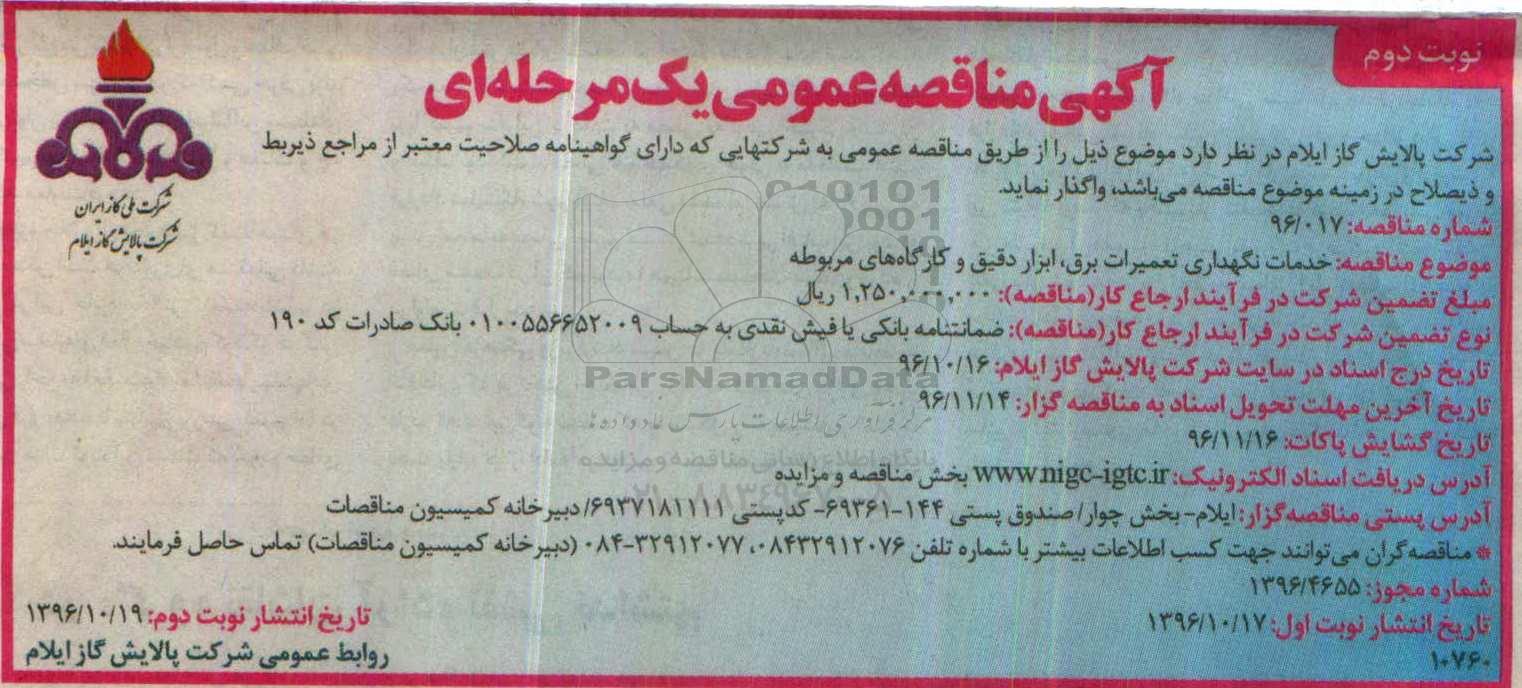 نوبت دوم
آگهی مناقصه عمومی یک مرحله‌ای
شرکت ملی گاز ایران
شرکت پالایش گاز ایلام
شرکت پالایش گاز ایلام در نظر دارد موضوع ذیل را از طریق مناقصه عمومی به شرکتهایی که دارای گواهینامه صلاحیت معتبر از مراجع ذیربط
و ذیصلاح در زمینه موضوع مناقصه می‌باشد، واگذار نماید.
شماره مناقصه: ۹۶/۰۱۷
موضوع مناقصه: خدمات نگهداری تعمیرات برق، ابزار دقیق و کارگاه‌های مربوطه
مبلغ تضمین شرکت در فرآیند ارجاع کار(مناقصه): ۱,۲۵۰,۰۰۰,۰۰۰ ریال
نوع تضمین شرکت در فرآیند ارجاع کار(مناقصه): ضمانتنامه بانکی یا فیش نقدی به حساب ۰۱۰۰۵۵۶۶۵۲۰۰۹ بانک صادرات کد ۱۹۰
تاریخ درج اسناد در سایت شرکت پالایش گاز ایلام: ۹۶/۱۰/۱۶
تاریخ آخرین مهلت تحویل اسناد به مناقصه گزار: ۹۶/۱۱/۱۴
تاریخ گشایش پاکات: ۹۶/۱۱/۱۶
آدرس دریافت اسناد الکترونیک: www.nigc-igtc.ir بخش مناقصه و مزایده
آدرس پستی مناقصه‌گزار: ایلام- بخش چوار/ صندوق پستی ۱۴۴-۶۹۳۶۱- کدپستی ۶۹۳۷۱۸۱۱۱۱/ دبیرخانه کمیسیون مناقصات
* مناقصه‌گران می‌توانند جهت کسب اطلاعات بیشتر با شماره تلفن ۰۸۴۳۲۹۱۲۰۷۶، ۰۸۴-۳۲۹۱۲۰۷۷ (دبیرخانه کمیسیون مناقصات) تماس حاصل فرمایند.
شماره مجوز: ۱۳۹۶/۴۶۵۵
تاریخ انتشار نوبت اول: ۱۳۹۶/۱۰/۱۷
تاریخ انتشار نوبت دوم: ۱۳۹۶/۱۰/۱۹
۱۰۷۶۰
روابط عمومی شرکت پالایش گاز ایلام
ParsNamadData
مرکز فرآوری اطلاعات پارس نماد داده ها
پایگاه اطلاع رسانی مناقصه و مزایده